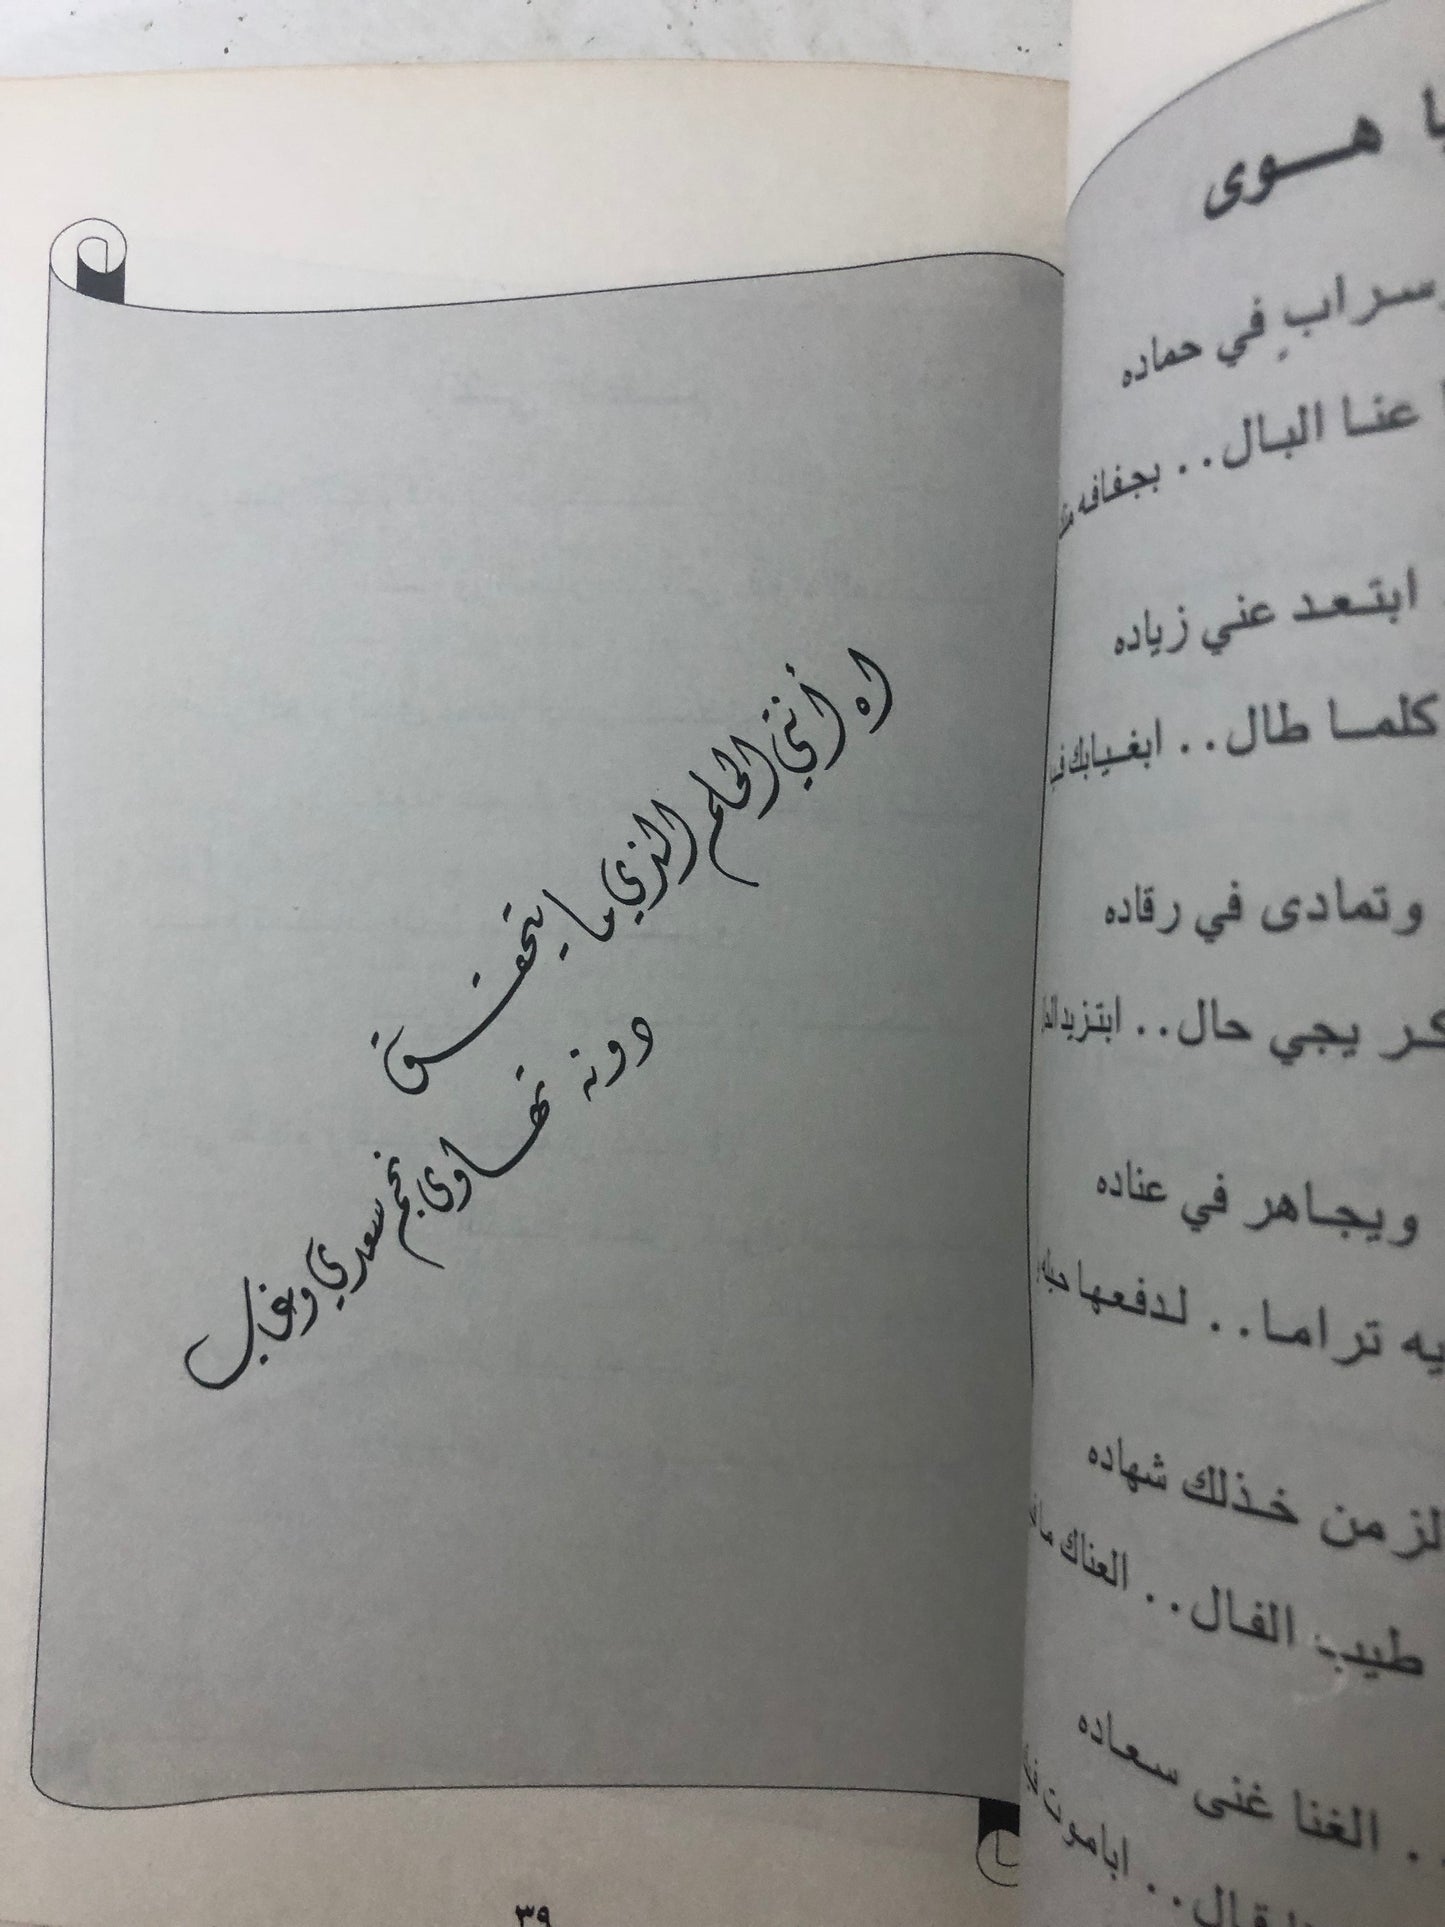 اه أنتي الحلم الذي ما يتحقق
دونه تهاوى نجم سعدي وغاب
٣٩
يا هوى
وسرابٍ في حماده
عنا البال.. بجفافه
ابتعد عني زياده
كلما طال.. ابغيابك
وتمادى في رقاده
يجي حال.. ابتزيد
ويجاهر في عناده
تراما.. لدفعها
الزمن خذلك شهاده
طيب الفال.. العناك
.. الغنا غنى سعاده
.. اباموت